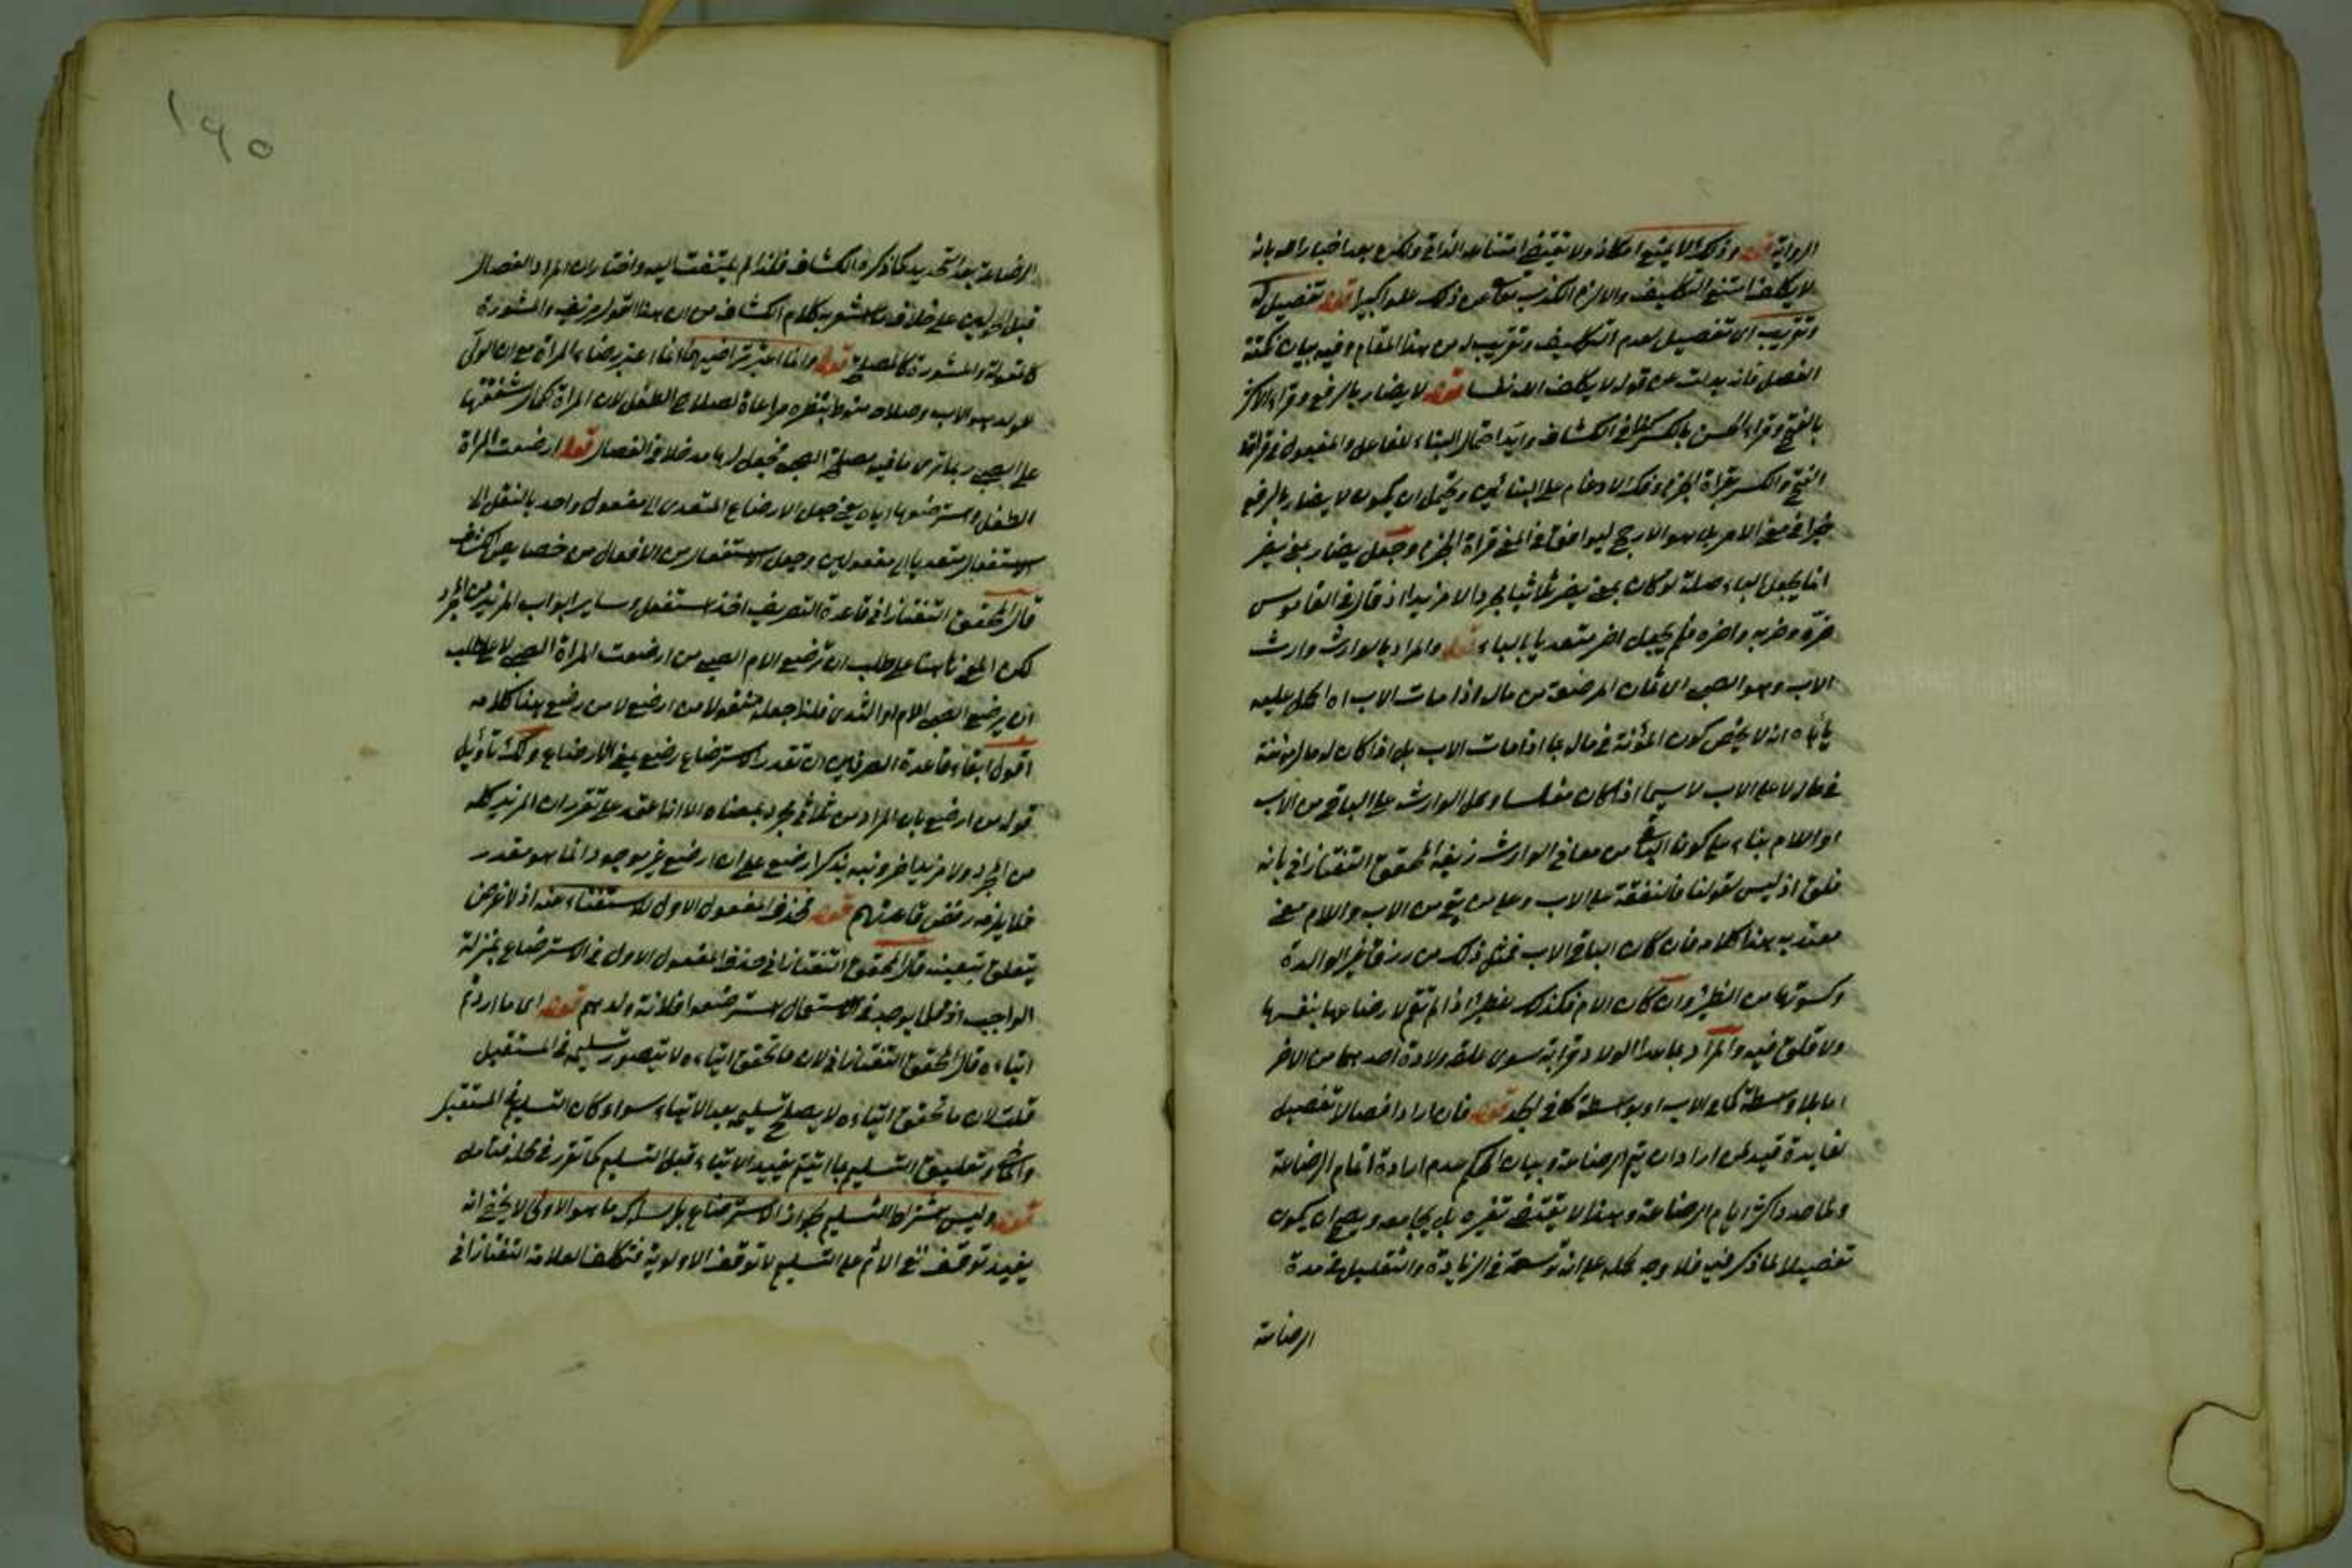 الرواية قوله وذلك لا يمنع امكانه ولا يقتضي امتناعه الذاتي ولكن بعد اخباره بانه
لا يكلف امتنع التكليف والا لزم الكذب تعالى عن ذلك علوا كبيرا قوله تفصيل له
وتقريب اى تفصيل لعدم التكليف وتقريب له من هذا المقام وفيه بيان نكتة
الفصل فانه بدل من قوله لا يكلف الله نفسا قوله لا يضار بالرفع وقراءة الاكثر
بالفتح وقراءة الحسن بالكسر كما في الكشاف وايد احتمال البناء للفاعل والمفعول في قراءة
الفتح والكسر بقراءة الجزم وفك الادغام على البنائين ويحتمل ان يكون لا يضار بالرفع
خبرا في معنى الامر بل هو الارجح ليوافق في المعنى قراءة الجزم وجعل يضار بمعنى يضر
انما يجعل الباء صلة لو كان بمعنى يضر ثلاثيا مجردا لا مزيدا اذ قال في القاموس
ضره وضر به واضره فلم يجعل اضر متعديا بالباء قوله والمراد بالوارث وارث
الاب وهو الصبي اى مؤن المرضعة من ماله اذا مات الاب اه الكل عليه
يأباه انه لا يخص كون المؤنة في ماله بما اذا مات الاب بل اذا كان له مال مؤنته
في ماله لا على الاب لا سيما اذا كان مفلسا وحمل الوارث على الباقي من الاب
او الام بناء على كون الباقي من معاني الوارث زيفه المحقق التفتازاني بانه
قلق اذ ليس لقولنا فالنفقة على الاب وعلى من بقي من الاب والام معنى
معتد به هذا كلامه فان كان الباقي الاب فمثل ذلك من رزق غير الوالدة
وكسوتها من الظئر وان كان الام فكذلك لظئر اذا لم تقم لارضاعها بنفسها
ولا قلق فيه والمراد بما عدا الولاد قرابة سوى علقة ولادة احدهما من الاخر
اما بلا واسطة كما في الاب او بواسطة كما في الجد قوله فان ارادا فصالا تفصيل
لفائدة قيد لمن اراد ان يتم الرضاعة وبيان لحكم عدم ارادة اتمام الرضاعة
ولما حدد اكثر ايام الرضاعة وهذا لا يقتضي تغيره بل يجامعه ويصح ان يكون
تفصيلا لما ذكر فيه فلا وجه لحمله على انه توسعة في الزيادة والتقليل في مدة
الرضاعة
١٩٥
الرضاعة بعد التحديد كما ذكره الكشاف فلذا لم يلتفت اليه واختار ان المراد الفصال
قبل الحولين على خلاف ما يشعر به كلام الكشاف من ان هذا القول مزيف والمشورة
كالمعونة والمشورة كالمصلحة قوله وانما اعتبر تراضيهما انما اعتبر رضاء المرأة مع ان الولي
للولد هو الاب وصلاحه منوط بنظره مراعاة لصلاح الطفل لان المرأة لكمال شفقتها
على الصبي ربما ترى ما فيه مصلحة الصبي فجعل لها مدخلا في الفصال قوله ارضعت المرأة
الطفل واسترضعتها اياه يعني جعل الارضاع المتعدى الى مفعول واحد بالنقل الى
الاستفعال متعديا الى مفعولين وجعل الاستفعال من الافعال من خصايص الكشاف
قال المحقق التفتازاني قاعدة التصريف اخذ استفعل وساير ابواب المزيد من المجرد
لكن المعنى هاهنا على طلب ان ترضع الام الصبي من ارضعت المرأة الصبي لا على طلب
ان يرضع الصبي الام او الثدى فلذا جعله منقولا من ارضع لا من رضع هذا كلامه
اقول ابقاء قاعدة الصرفيين ان تقدر لاسترضاع رضع بمعنى الارضاع ولك تأويل
قوله من ارضع بان المراد من ثلاثي مجرد بمعناه الا انه اعتمد على تقرر ان المزيد كله
من المجرد ولا مزيد اخر ونبه بذكر ارضع على ان ارضع غير موجود انما هو مقدر
فلا يلزمه رفض قاعدتهم قوله فحذف المفعول الاول للاستغناء عنه اذ لا غرض
يتعلق بتعيينه قال المحقق التفتازاني حذف المفعول الاول في الاسترضاع بمنزلة
الواجب اذ قلما يوجد في الاستعمال استرضعوا فلانة ولدهم قوله اى ما اردتم
ايتاءه قال المحقق التفتازاني لان ما تحقق ايتاءه لا يتصور تسليمه في المستقبل
قلت لان ما تحقق ايتاءه لا يصلح تسليمه بعد الايتاء سواء كان التسليم في المستقبل
والحال وتعليق التسليم بما اتيتم يفيد الايتاء قبل التسليم كما تقرر في محله فتأمل
قوله وليس اشتراط التسليم لجواز الاسترضاع بل لسلوك ما هو الاولى لا يخفى انه
يفيد توقف نفي الاثم على التسليم لا توقف الاولوية فتكلف العلامة التفتازاني